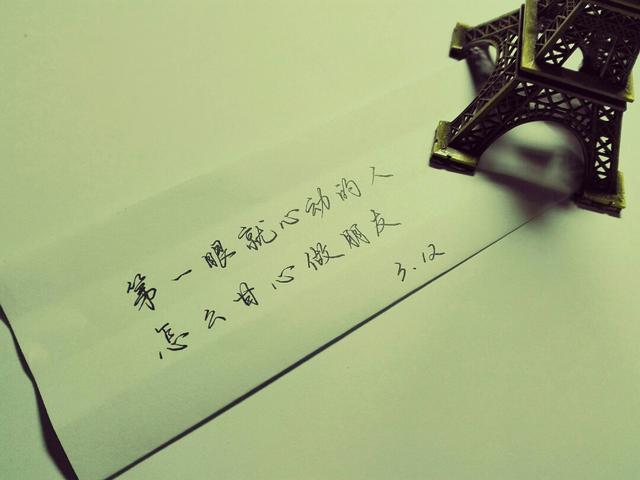 第一眼就心动的人
怎么甘心做朋友
3.12